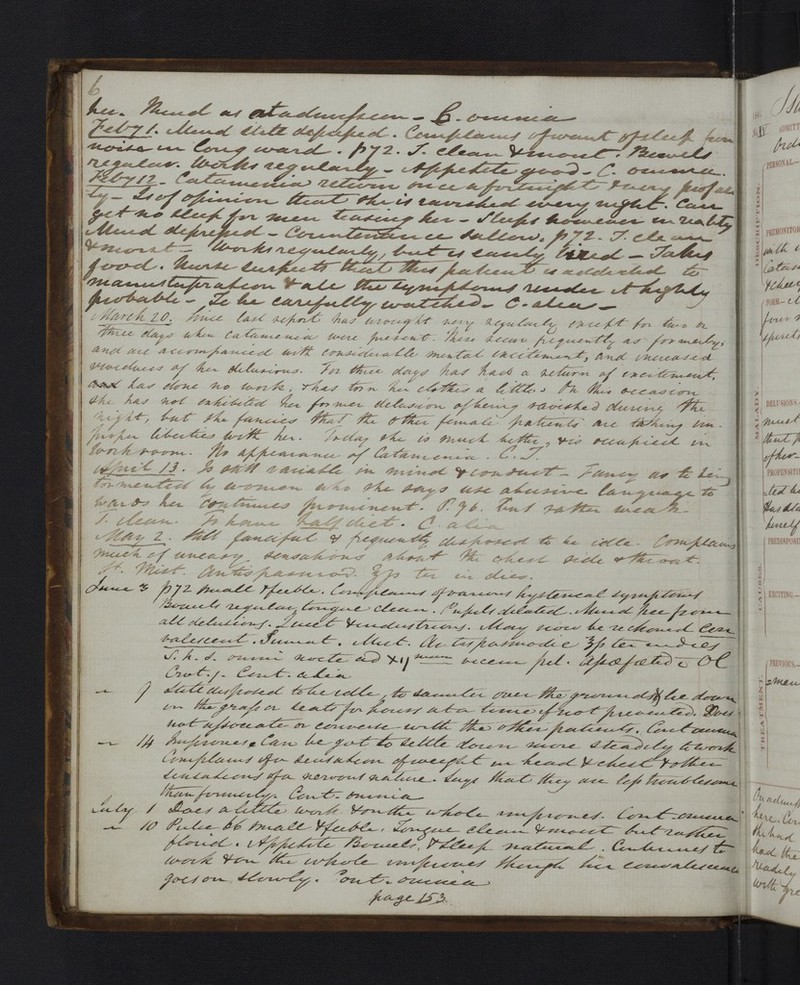 6
her. Mind as at admission - C. omnia
Feby 1. Mind still depressed. Complains of want of sleep from
noise in long ward. P 72. T. clean & moist. Bowels
regular. Works regularly - Appetite good - C. omnia.
Feby 12 - Catamenia return once a fortnight & very profuse
ly - Is of opinion that she is ravished every night. Can
get no sleep for men teasing her - Sleeps however in reality
Mind depressed - Countenance sallow. p 72. T. clean
& moist - Works regularly, but is easily tired - Takes
food. Nurse suspects that this patient is addicted to
manustupration & all the symptoms render it highly
probable - To be carefully watched - C. alia -
March 20. Since last report has wrought very regularly except for two or
three days when catamenia were present. These recur frequently as formerly,
and are accompanied with considerable mental excitement, and increased
vividness of her delusions. For three days has had a return of excitement,
and has done no work, & has torn her clothes a little. On this occasion
she has not exhibited her former delusion of being ravished during the
night, but she fancies that the other female patients are taking im-
proper liberties with her. Today she is much better, & is occupied in
work room. No appearance of Catamenia. C. T.
April 13. Is still variable in mind & conduct - Fancy as to being
tormented by women who she says use abusive language to
wards her continues prominent. P. 96. but rather weak
T. clean. To have half diet. C. alia
May 2. Still fanciful & frequently disposed to be idle. Complains
much of uneasy sensations about the chest side & throat.
St. Mist. Antispasmod. ℥ſs ter in dies.
June 3 p 72 small & feeble. Complains of various hysterical symptoms
Bowels regular, tongue clean. Pupils dilated. Mind free from
all delusions. Quiet & industrious. May now be reckoned Con
valescent. Sumat. Mist. Antispasmodic ℥ſs ter in dies
S. h. s. omni nocte
Crot. j. Cont. alia
" 7 Still disposed to be idle, to saunter over the grounds & lie down
on the grass or seats for hours at a time if not prevented. Does
not associate or converse with the other patients. Cont omnia
" 14 Improves. Can be got to settle down more steadily to work
Complains of a sensation of weight in head & chest & other
sensations of a nervous nature. Says that they are less troublesome
than formerly. Cont. omnia
July 1 Does a little work & on the whole improves. Cont. omnia
" 10 Pulse 66 small & feeble. Tongue clean & moist but rather
florid. Appetite Bowels, & sleep natural. Continues to
work & on the whole improves though her convalescence
goes on slowly. Cont. omnia
page 153
PERSONAL
DELUSIONS
EXCITING
PREVIOUS
TREATMENT